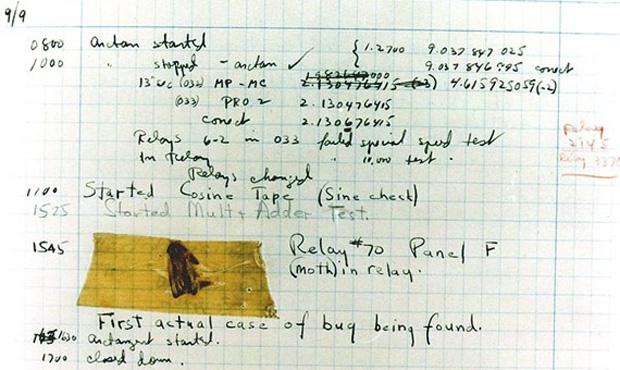 9/9
0800 antan started { 1.2700 9.037 847 025
1000 " stopped - antan ✓ 9.037 846 995 conect
13"uc (032) MP - MC 2.130476415 4.615925059(-2)
(033) PRO 2 2.130476415
conect 2.130676415
Relays 6-2 in 033 failed special speed test
In Relay " 10.000 test.
Relay 2145
Relay 3370
Relays changed
1100 Started Cosine Tape (Sine check)
1525 Started Mult + Adder Test.
1545 Relay #70 Panel F
(moth) in relay.
First actual case of bug being found.
1630 antangent started.
1700 closed down.